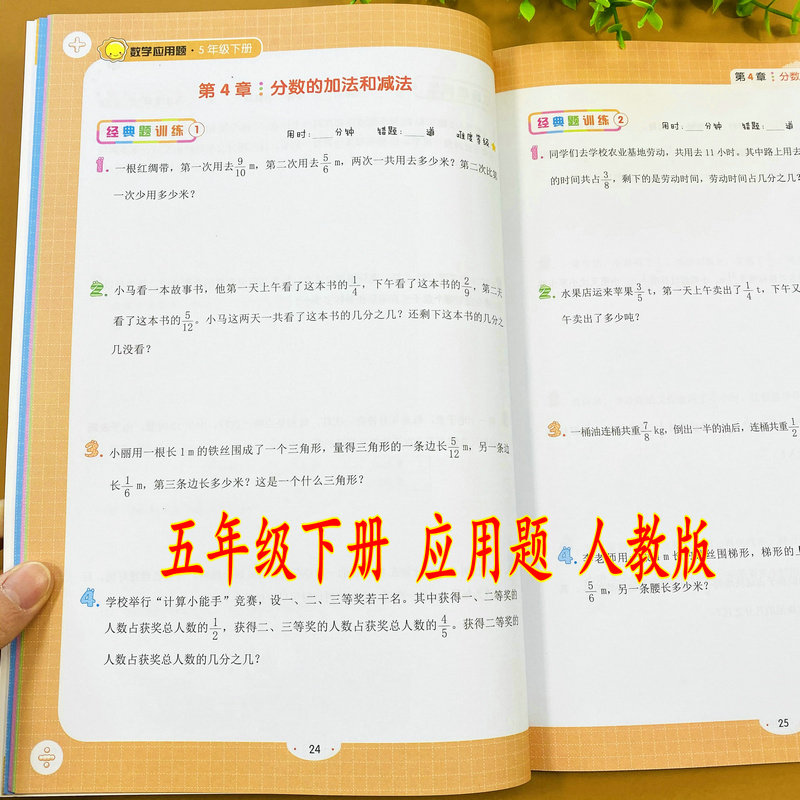 数学应用题·5年级下册
第4章 分数的加法和减法
经典题训练 1
用时:____分钟 错题:____道 难度等级
1. 一根红绸带,第一次用去9/10 m,第二次用去5/6 m,两次一共用去多少米?第二次比第
一次少用多少米?
2. 小马看一本故事书,他第一天上午看了这本书的1/4,下午看了这本书的2/9,第二天
看了这本书的5/12。小马这两天一共看了这本书的几分之几?还剩下这本书的几分之
几没看?
3. 小丽用一根长1 m的铁丝围成了一个三角形,量得三角形的一条边长5/12 m,另一条边
长1/6 m,第三条边长多少米?这是一个什么三角形?
4. 学校举行“计算小能手”竞赛,设一、二、三等奖若干名。其中获得一、二等奖的
人数占获奖总人数的1/2,获得二、三等奖的人数占获奖总人数的4/5。获得二等奖的
人数占获奖总人数的几分之几?
24
第4章 分数
经典题训练 2
用时:____分钟 错题:
1. 同学们去学校农业基地劳动,共用去11小时。其中路上用去
的时间共占3/8,剩下的是劳动时间,劳动时间占几分之几?
2. 水果店运来苹果3/5 t,第一天上午卖出了1/4 t,下午又
午卖出了多少吨?
3. 一桶油连桶共重7/8 kg,倒出一半的油后,连桶共重1/2
4. 李老师用 m长 丝围梯形,梯形的
5/6 m,另一条腰长多少米?
25
五年级下册 应用题 人教版